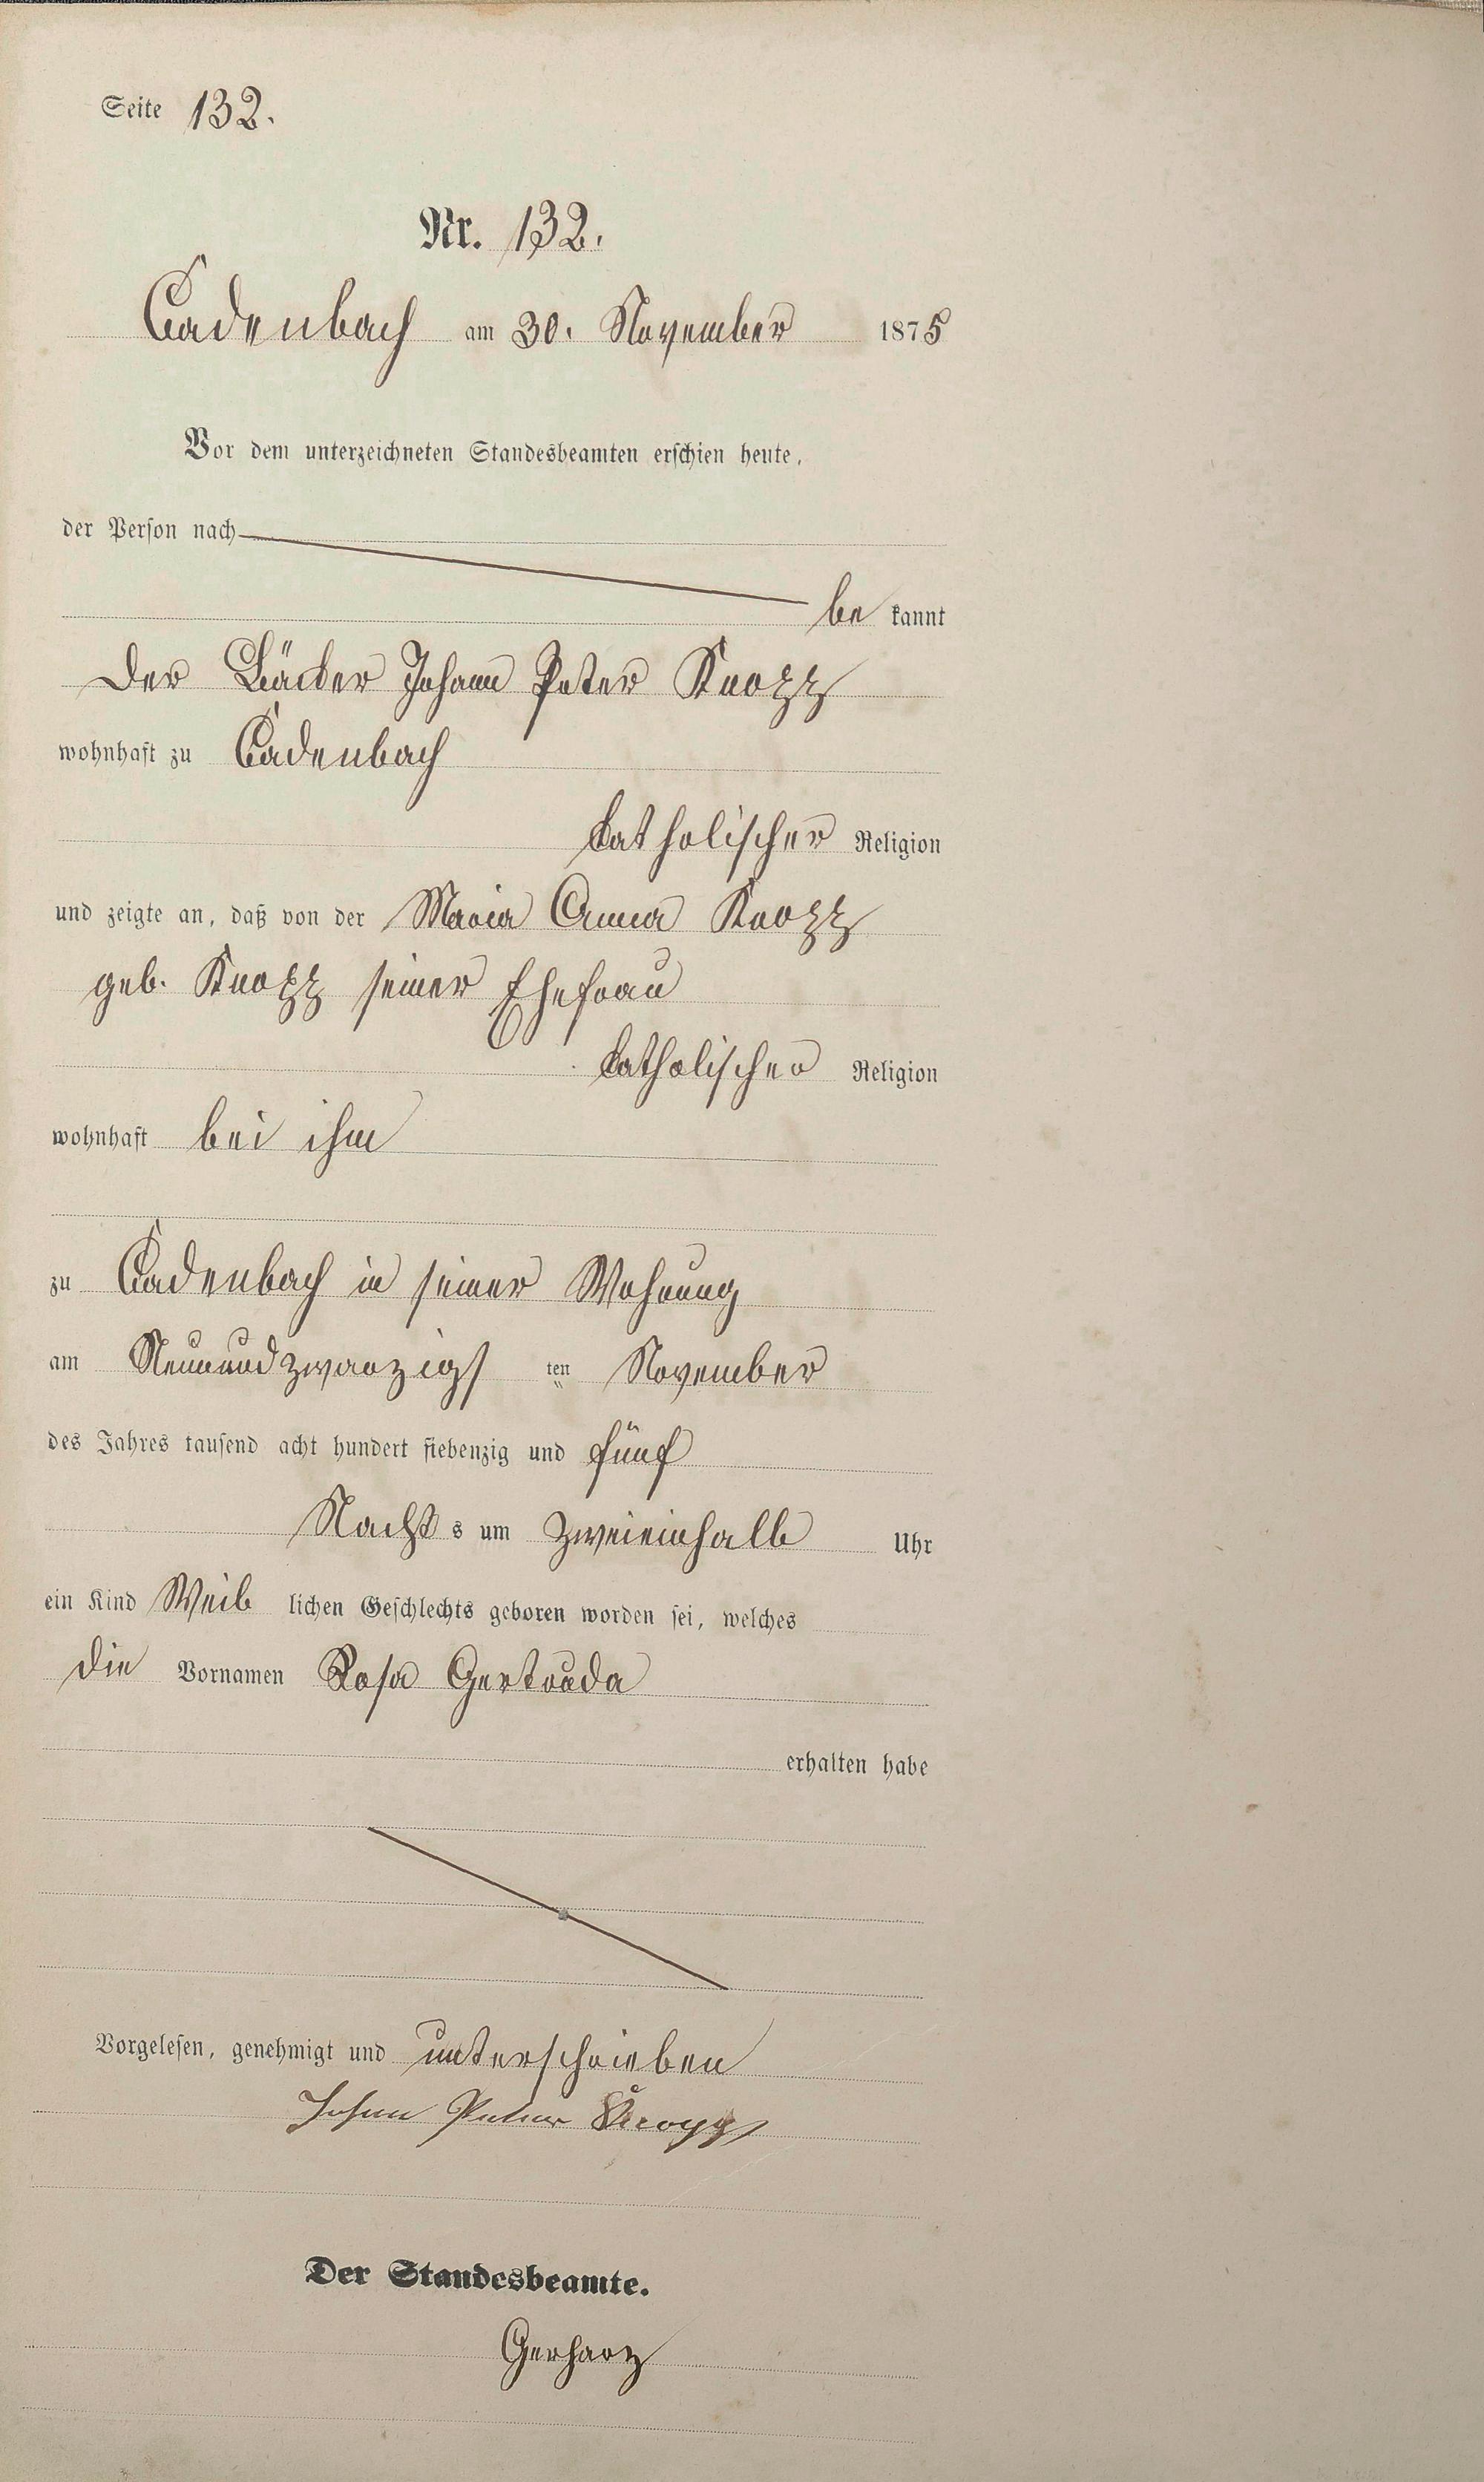 Seite 132.
Nr. 132.
Cadenbach am 30. November 1875
Vor dem unterzeichneten Standesbeamten erschien heute,
der Person nach
be kannt
der Bäcker Johann Peter Knopp
wohnhaft zu Cadenbach
katholischer Religion
und zeigte an, daß von der Maria Anna Knopp
geb. Knopp seiner Ehefrau
katholischer Religion
wohnhaft bei ihm
zu Cadenbach in seiner Wohnung
am Neunundzwanzigs ten November
des Jahres tausend acht hundert siebenzig und fünf
Nacht s um zweieinhalb Uhr
ein Kind Weib lichen Geschlechts geboren worden sei, welches
die Vornamen Rosa Gertruda
erhalten habe
Vorgelesen, genehmigt und unterschrieben
Johann Peter Knopp
Der Standesbeamte.
Gerharz